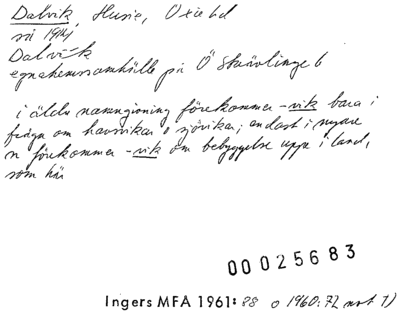 Dalvik, Husie, Oxie hd
nä 1914
Dalvik
egnahemssamhälle på Ö Skrävlinge 6
i äldre namngivning förekommer -vik bara i
fråga om havsvikar o sjövikar; endast i nyare
n förekommer -vik om bebyggelse uppe i land,
som här
00025683
Ingers MFA 1961: 88 o 1960:72 not 1)